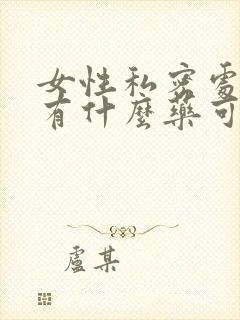 女性私密處
有什麼藥可
盧某